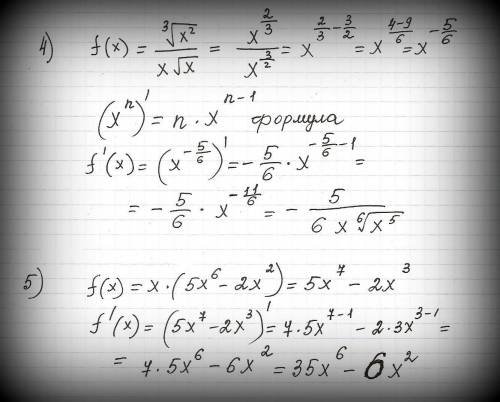 4) f(x) = ∛(x²) / (x√x) = x^(2/3) / x^(3/2) = x^(2/3 - 3/2) = x^((4-9)/6) = x^(-5/6)
(xⁿ)' = n · x^(n-1) формула
f'(x) = (x^(-5/6))' = -5/6 · x^(-5/6 - 1) =
= -5/6 · x^(-11/6) = - 5 / (6x ⁶√(x⁵))
5) f(x) = x · (5x⁶ - 2x²) = 5x⁷ - 2x³
f'(x) = (5x⁷ - 2x³)' = 7 · 5x^(7-1) - 2 · 3x^(3-1) =
= 7 · 5x⁶ - 6x² = 35x⁶ - 6x²